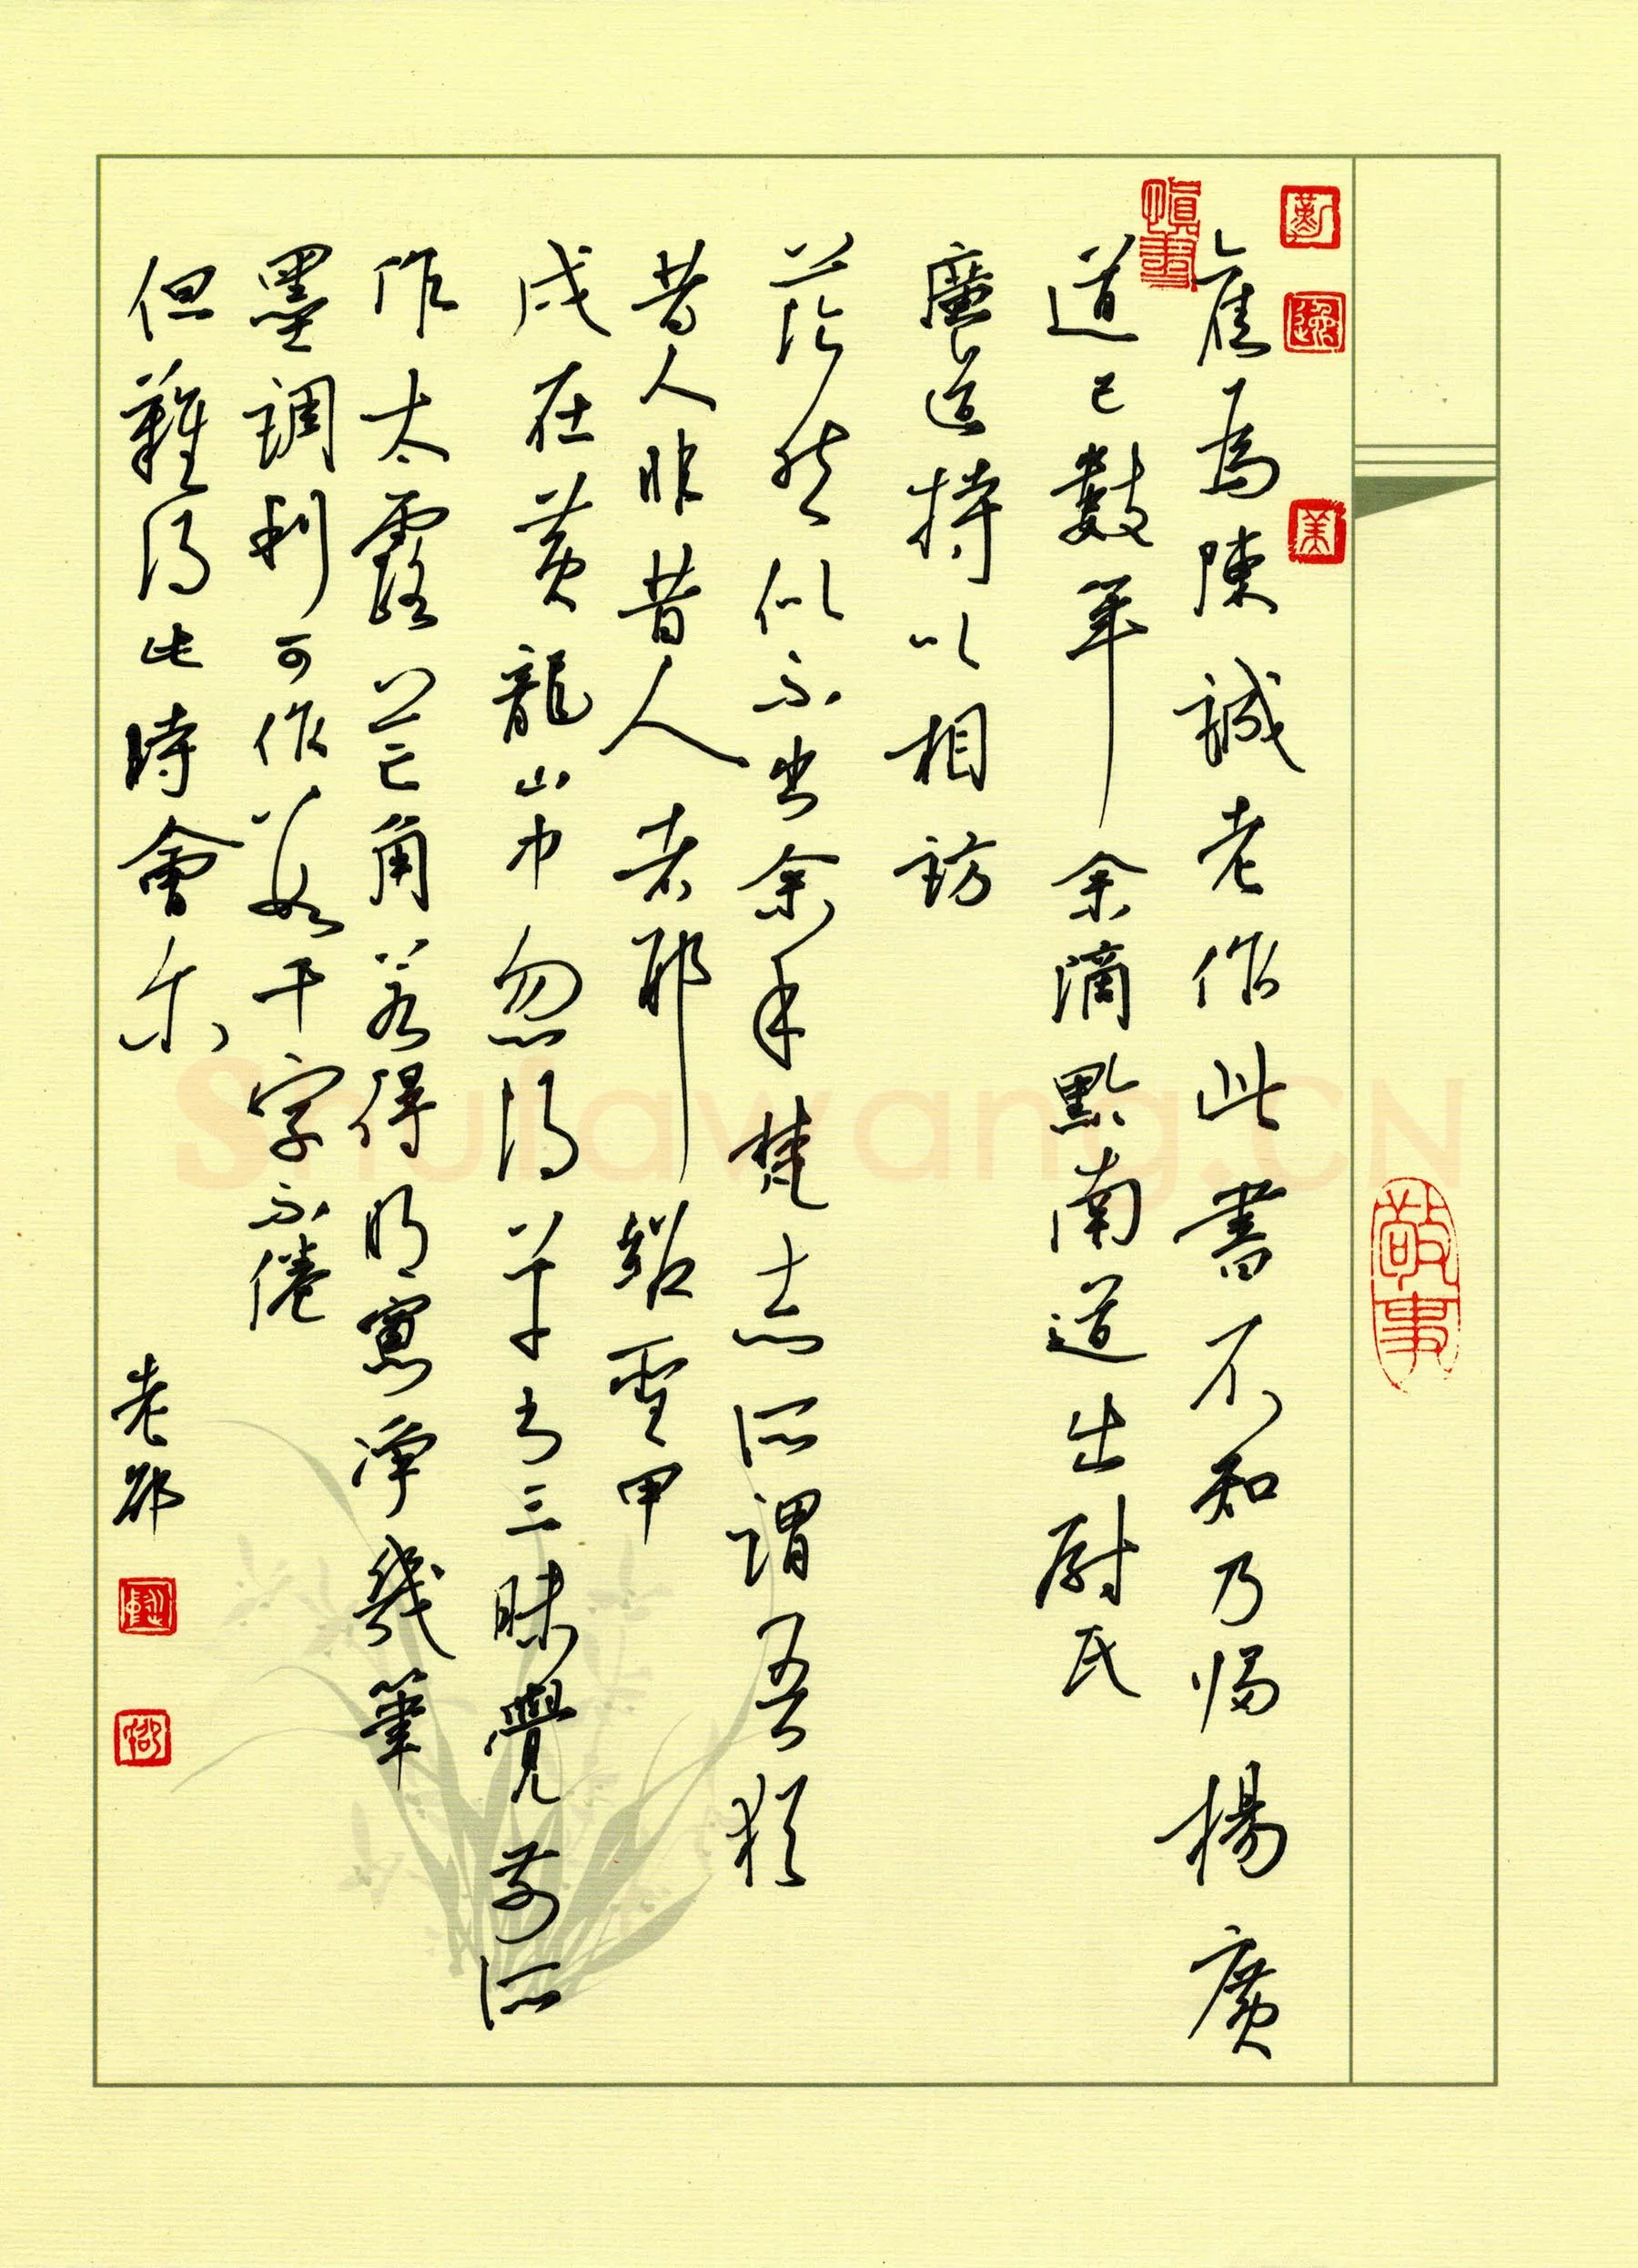 敬事
舊為陳誠老作此書不知乃歸楊廣
道已數年余謫黔南道出尉氏
廣道持以相訪
茫然似不出余手梵志所謂吾猶
昔人非昔人者耶紹聖甲
戌在黃龍山中忽得草书三昧覺前所
作太露芒角若得明窗淨幾筆
墨調利可作數千字不倦
但難得此時會尔
老邵
Shufawang.CN